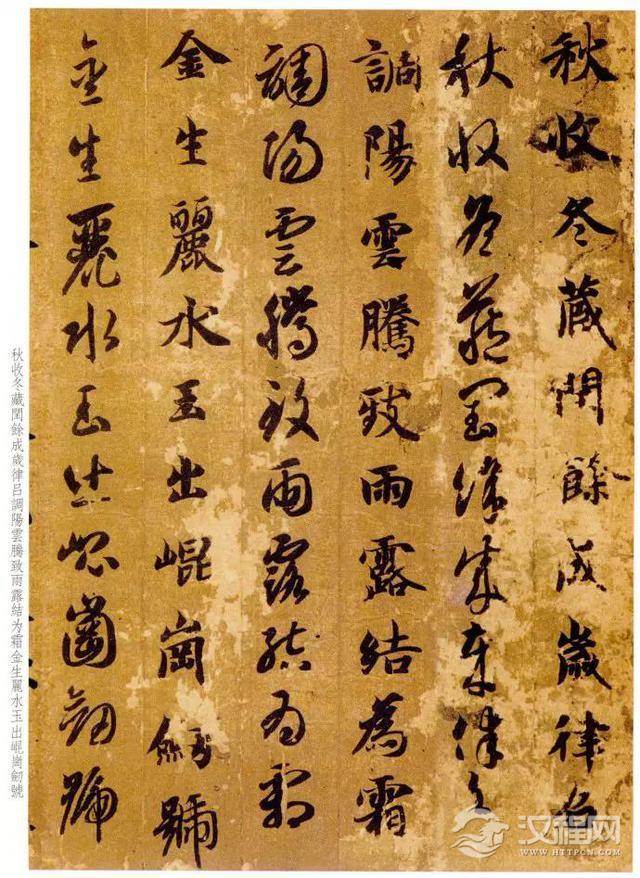 秋收冬蔵閏餘成歲律吕
秋收冬藏閏餘成歲律吕
調陽雲騰致雨露結為霜
調陽雲騰致雨露結為霜
金生麗水玉出崐崗劒號
金生麗水玉出崐崗劒號
秋收冬藏閏餘成歲律吕調陽雲騰致雨露結为霜金生麗水玉出崐崗劒號
汉程网
WWW.HTTPCN.COM